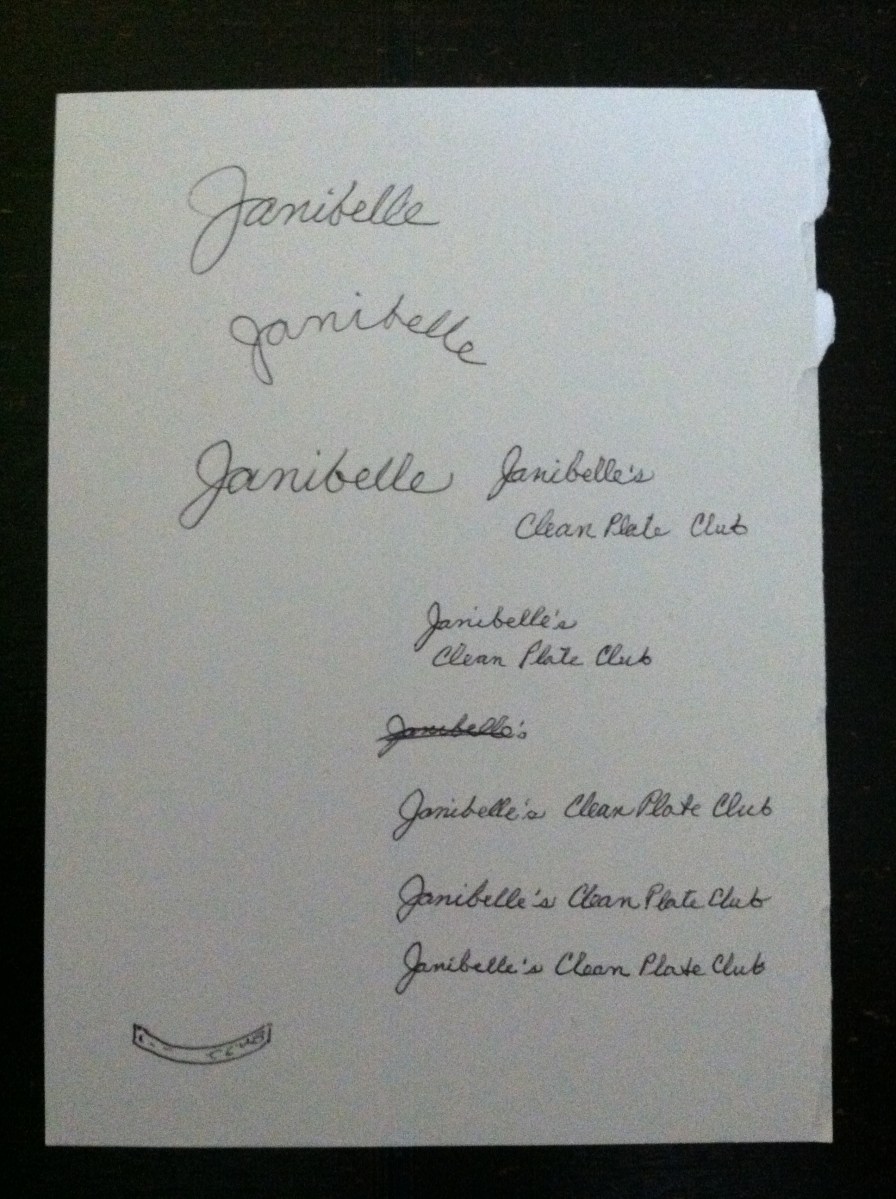 Janibelle
Janibelle
Janibelle
Janibelle's
Clean Plate Club
Janibelle's
Clean Plate Club
Janibelle's
Janibelle's Clean Plate Club
Janibelle's Clean Plate Club
Janibelle's Clean Plate Club